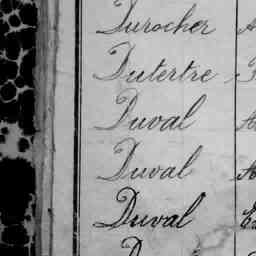 Durocher
Dutertre
Duval
Duval
Duval